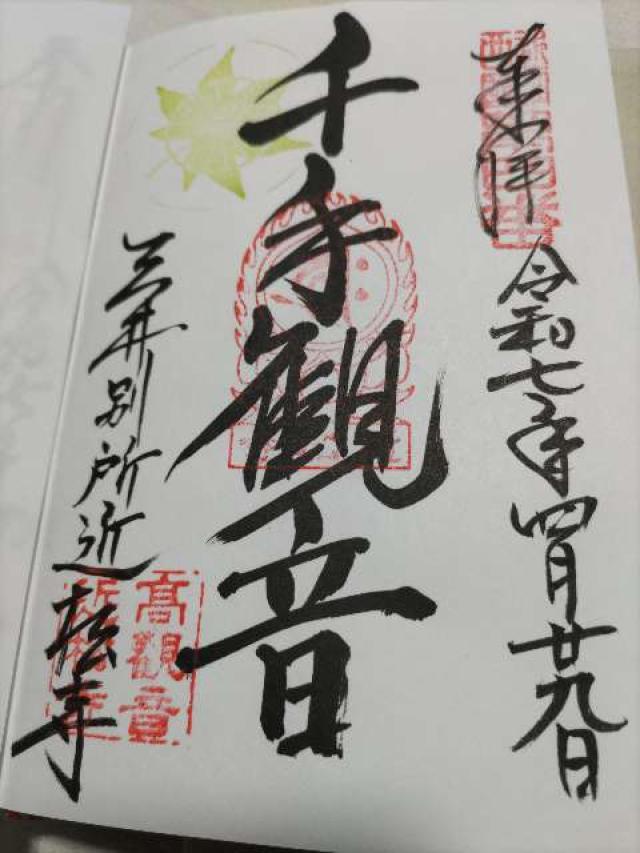 奉拝
令和七年四月廿九日
千手観音
三井別所近松寺
高觀音